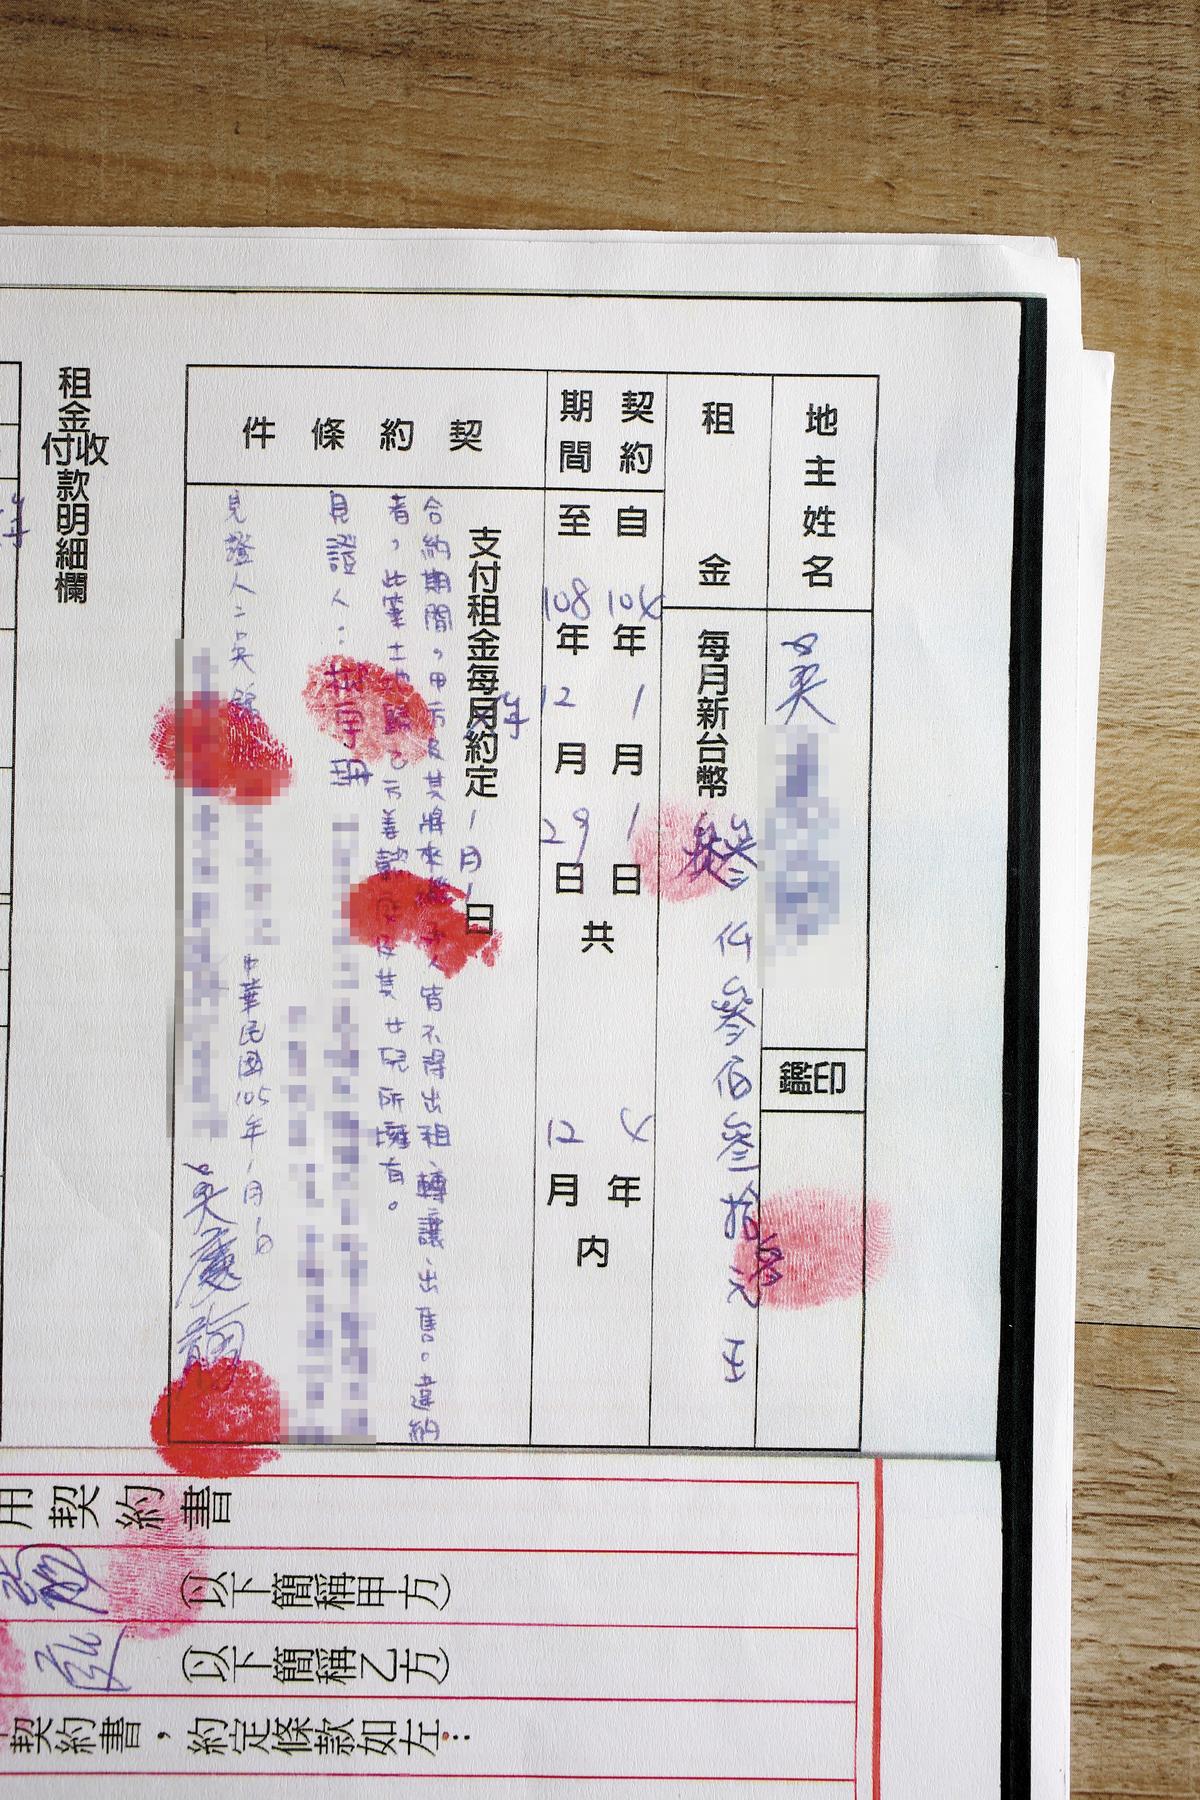 地主姓名
吳
鑑印
租金
每月新台幣
仟參佰參拾元正
參
契約期間
自104年1月1日共4年內
至108年12月29日12月
契約條件
支付租金每月約定1月1日
年
合約期間，甲方及其將來繼 人皆不得出租、轉讓、出售。違約
者，此筆土地歸乙方姜 及其女兒所擁有。
見證人：
見證人二吳
中華民國105年1月1日
吳慶
租金付收款明細欄
年
用契約書
(以下簡稱甲方)
(以下簡稱乙方)
契約書，約定條款如左：